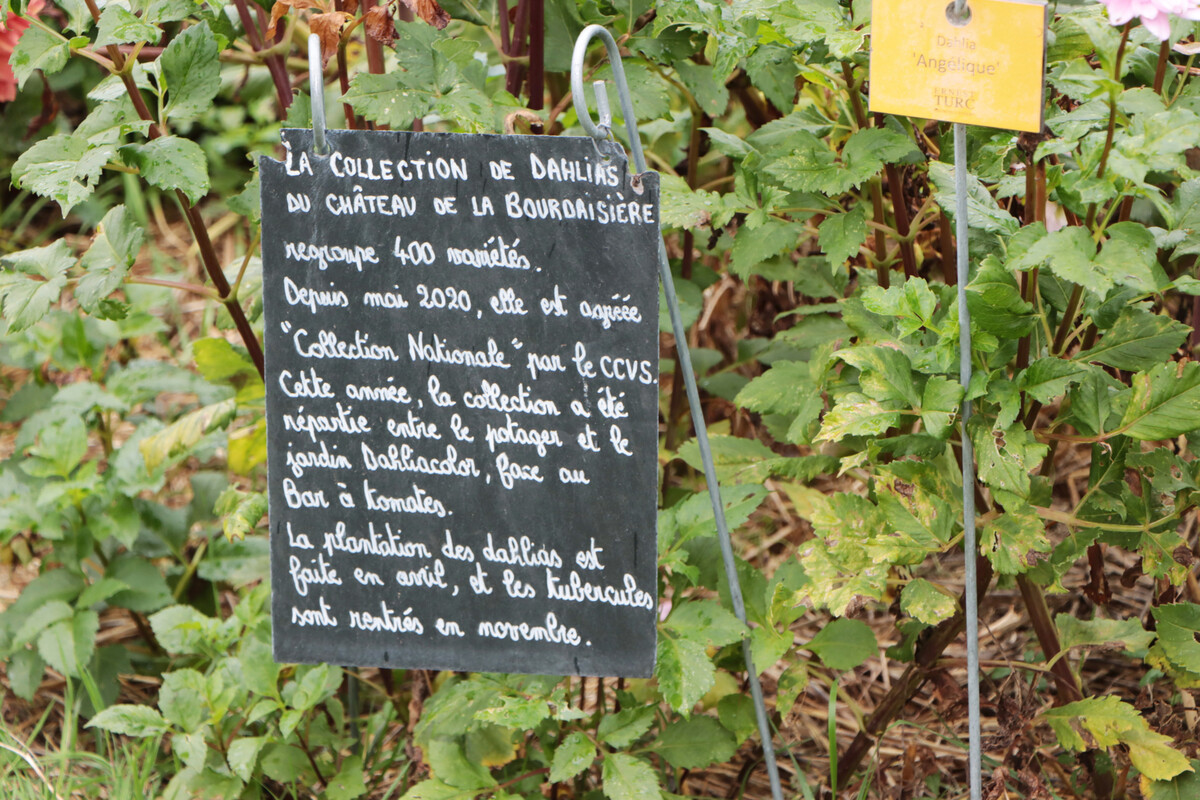 La Collection de Dahlias
du Château de la Bourdaisière
regroupe 400 variétés.
Depuis mai 2020, elle est agréée
"Collection Nationale" par le CCVS.
Cette année, la collection a été
répartie entre le potager et le
jardin Dahliacolor, face au
Bar à tomates.
La plantation des dahlias est
faite en avril, et les tubercules
sont rentrés en novembre.
Dahlia
'Angélique'
ERNEST
TURC